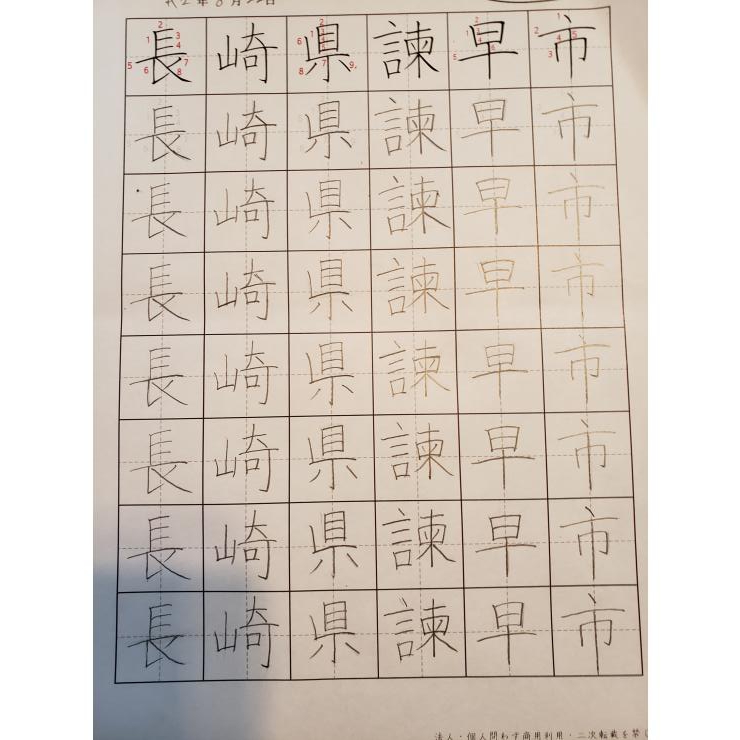 年8月
長崎県諫早市
長崎県諫早市
長崎県諫早市
長崎県諫早市
長崎県諫早市
長崎県諫早市
長崎県諫早市
長崎県諫早市
法人・個人問わず商用利用・二次転載を禁